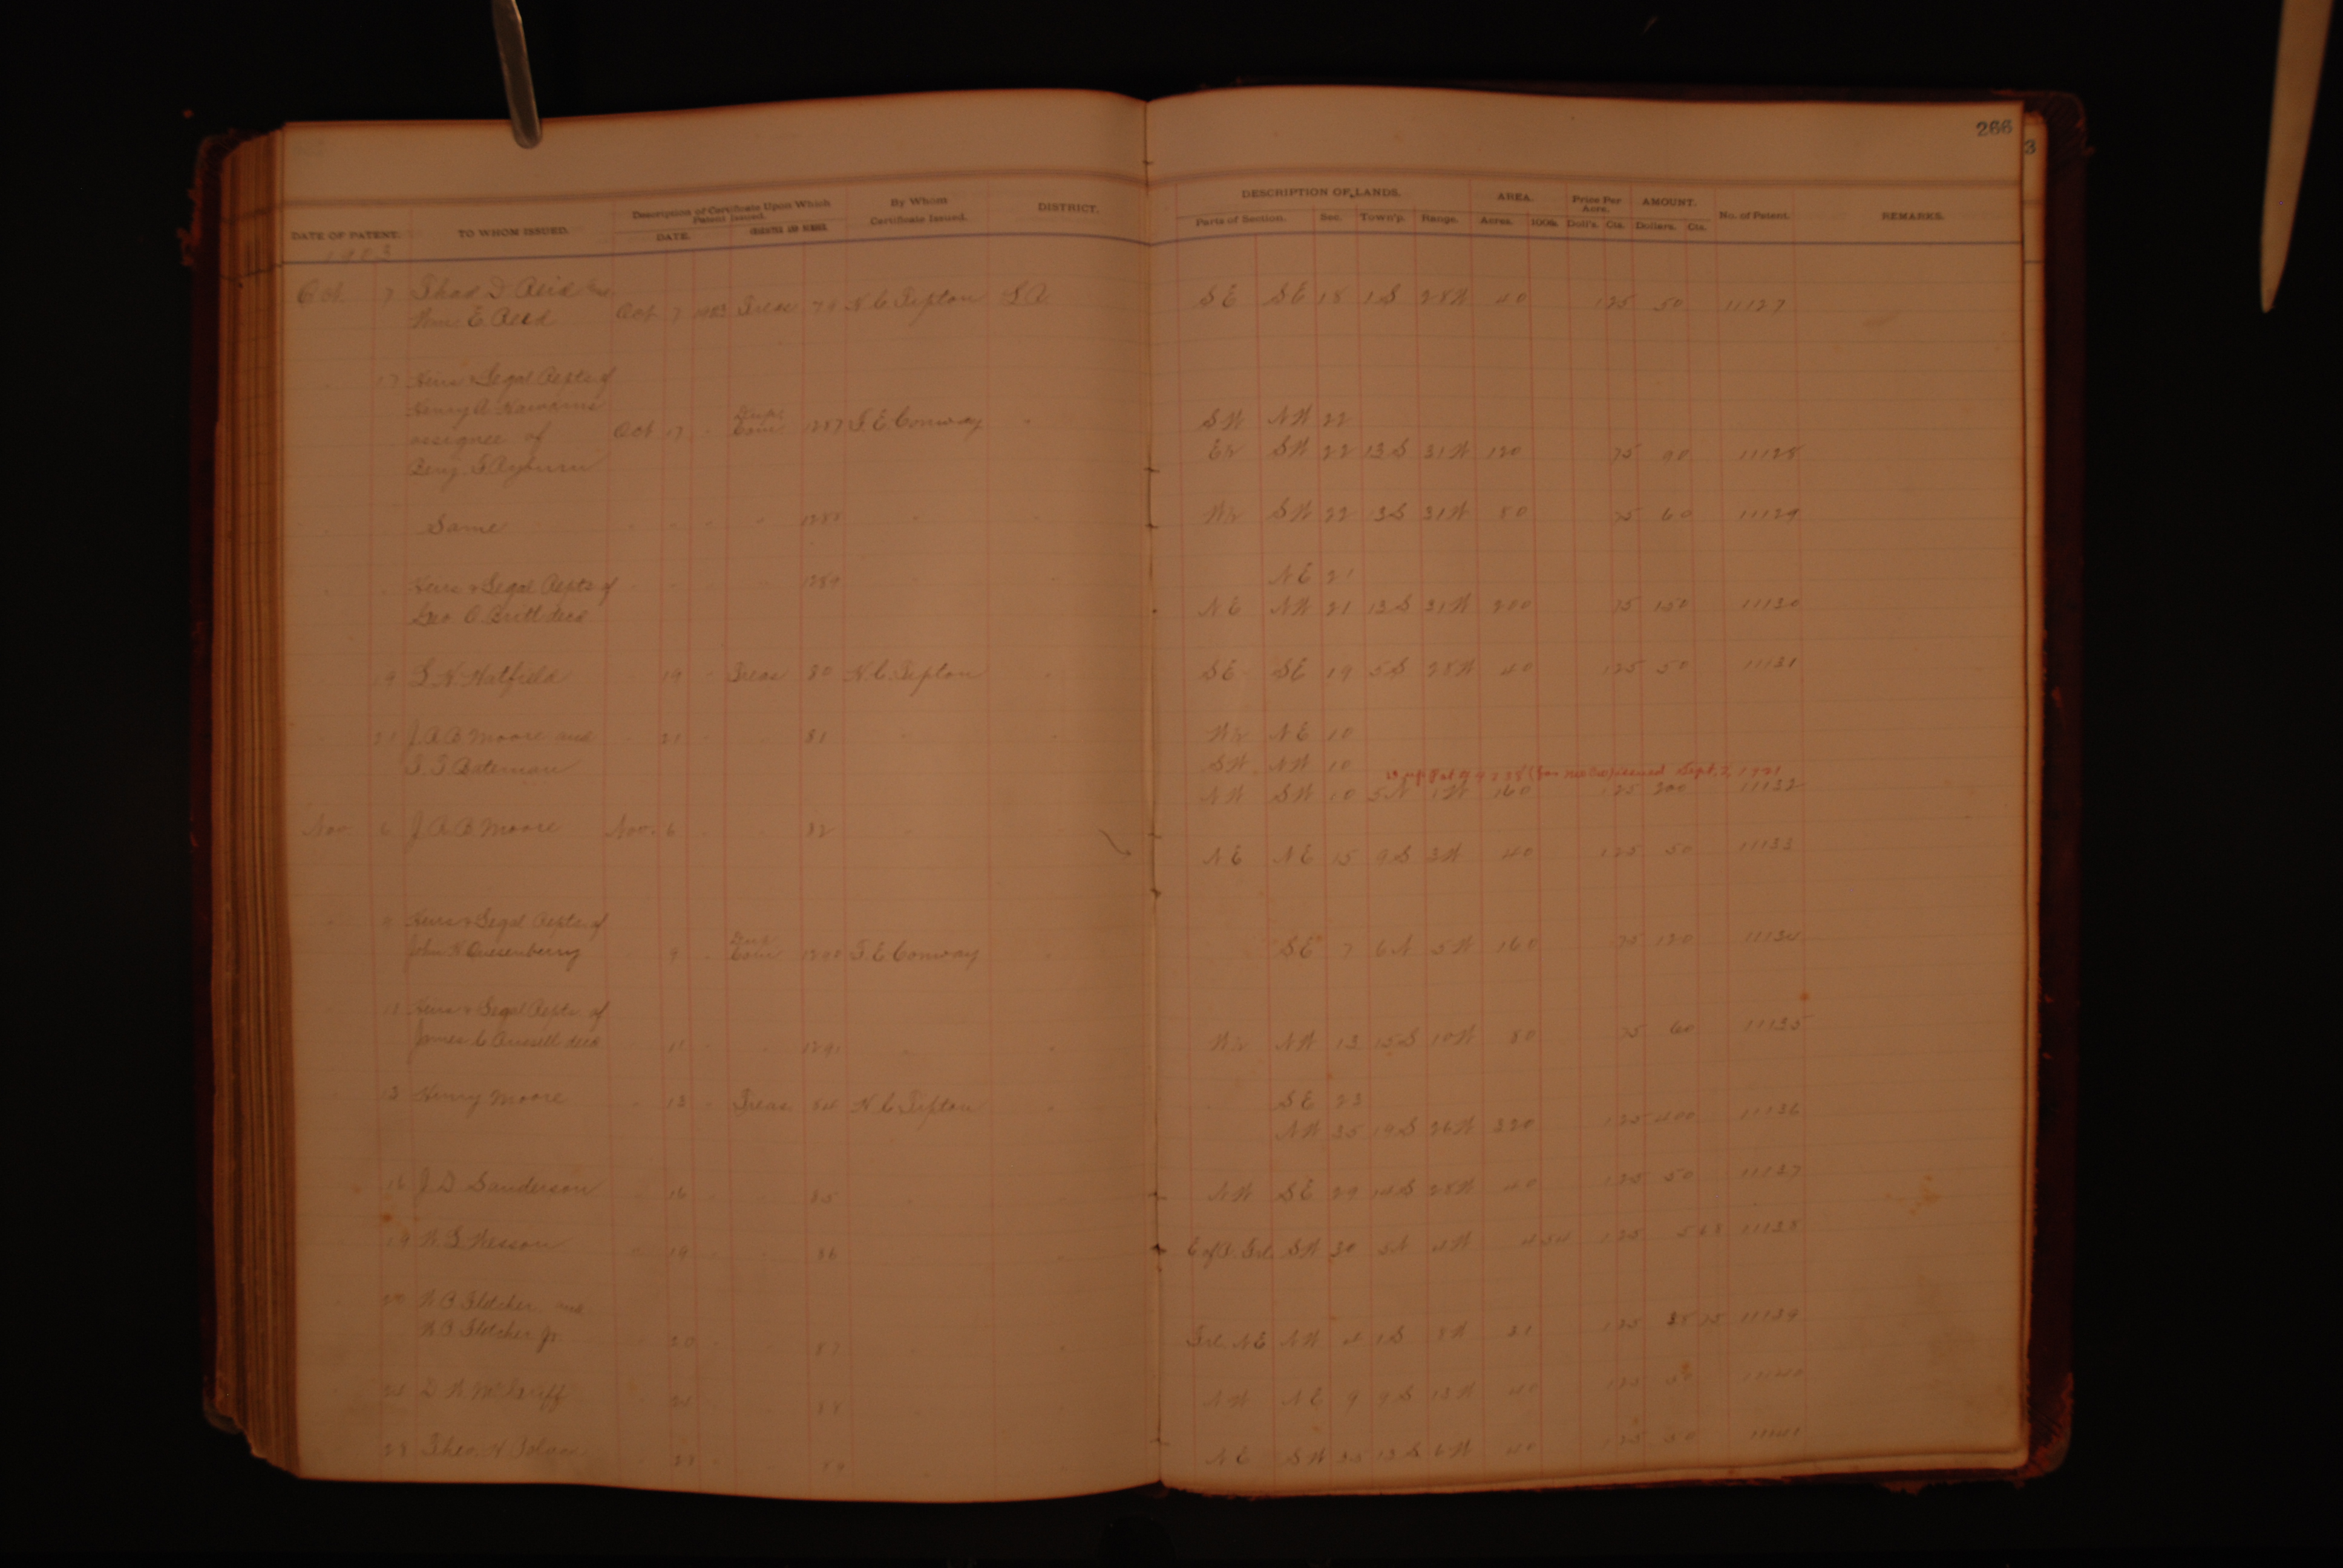 266
3
DATE OF PATENT. TO WHOM ISSUED. Description of Certificate Upon Which Patent Issued. DATE. CHARACTER AND NUMBER. By Whom Certificate Issued. DISTRICT. DESCRIPTION OF LANDS. Parts of Section. Sec. Town'p. Range. AREA. Acres. 100ths Price Per Acre. Doll's. Cts. AMOUNT. Dollars. Cts. No. of Patent. REMARKS.
1903
Oct 7 Thad D. Reid and
Wm. E. Reid Oct 7 1903 Treas 79 H. C. Tipton S E S E 18 1 S 28 W 40 1 25 50 11127
17 Heirs & Legal Repts of
Henry A.
assignee of Oct 17 " Dup. Com 1287 T. E. Conway " S W N W 22
Benj. E 1/2 S W 22 13 S 31 W 120 75 90 11128
Same " " " " 1288 " " W 1/2 S W 22 13 S 31 W 80 75 60 11129
" " Heirs & Legal Repts of " " " " 1289 " " N E 21
Geo. C. Britt decd N E N W 21 13 S 31 W 200 75 150 11130
" 19 Hatfield " 19 " Treas 80 H. C. Tipton " S E S E 19 5 S 28 W 40 1 25 50 11131
" 21 J. A. B. Moore and " 21 " " 81 " W 1/2 N E 10
Bateman S W N W 10
issued Sept. 2,
N W S W 10 5 N 1 W 160 1 25 200 11132
Nov. 6 J. A. B. Moore Nov. 6 " " 82 " N E N E 15 9 S 3 W 40 1 25 50 11133
" 9 Heirs & Legal Repts. of
John Quesenberry " 9 " Dup Com 1290 T. E. Conway " S E 7 6 N 5 W 160 75 120 11134
11 Heirs & Legal Repts. of
James C. Russell decd " 11 " " 1291 " " W 1/2 N W 13 15 S 10 W 80 75 60 11135
" 13 Henry Moore " 13 " Treas 84 H. C. Tipton " S E 23
N W 35 19 S 26 W 320 1 25 400 11136
" 16 J. D. Sanderson " 16 " " 85 " N W S E 29 14 S 28 W 40 1 25 50 11137
" 19 Wesson " 19 " " 86 " Frl. S W 30 5 N 4 W 4 54 1 25 5 68 11138
" 20 Fletcher and
Fletcher Jr. " 20 " " 87 " Frl. N E N W 4 1 S 8 W 31 1 25 38 75 11139
" 24 D. W. " 24 " " 88 " N W N E 9 9 S 13 W 40 1 25 50 11140
28 Theo. " " 89 " N E S W 35 13 S 6 W 40 1 25 50 11141